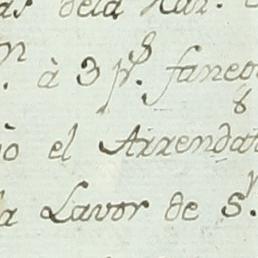 as dela Har.
. à 3 ps. faneg
ò el Arrendat
a Lavor de S.